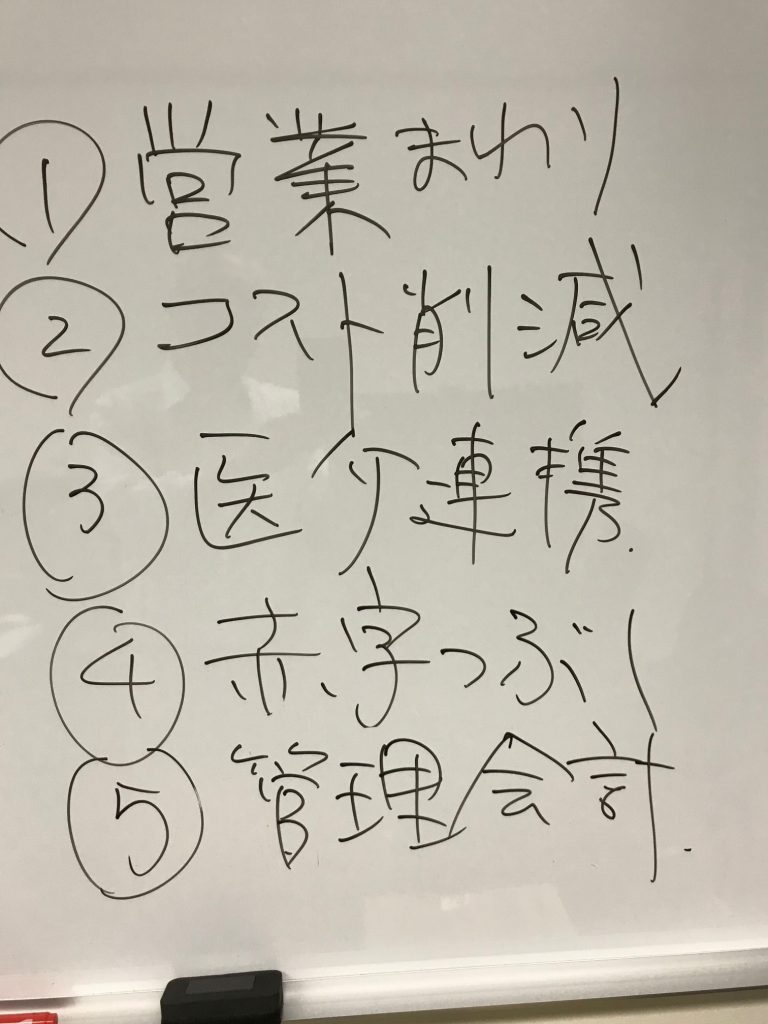 ① 営業まわり
② コスト削減
③ 医ケ連携.
④ 赤字つぶし
⑤ 管理会計.